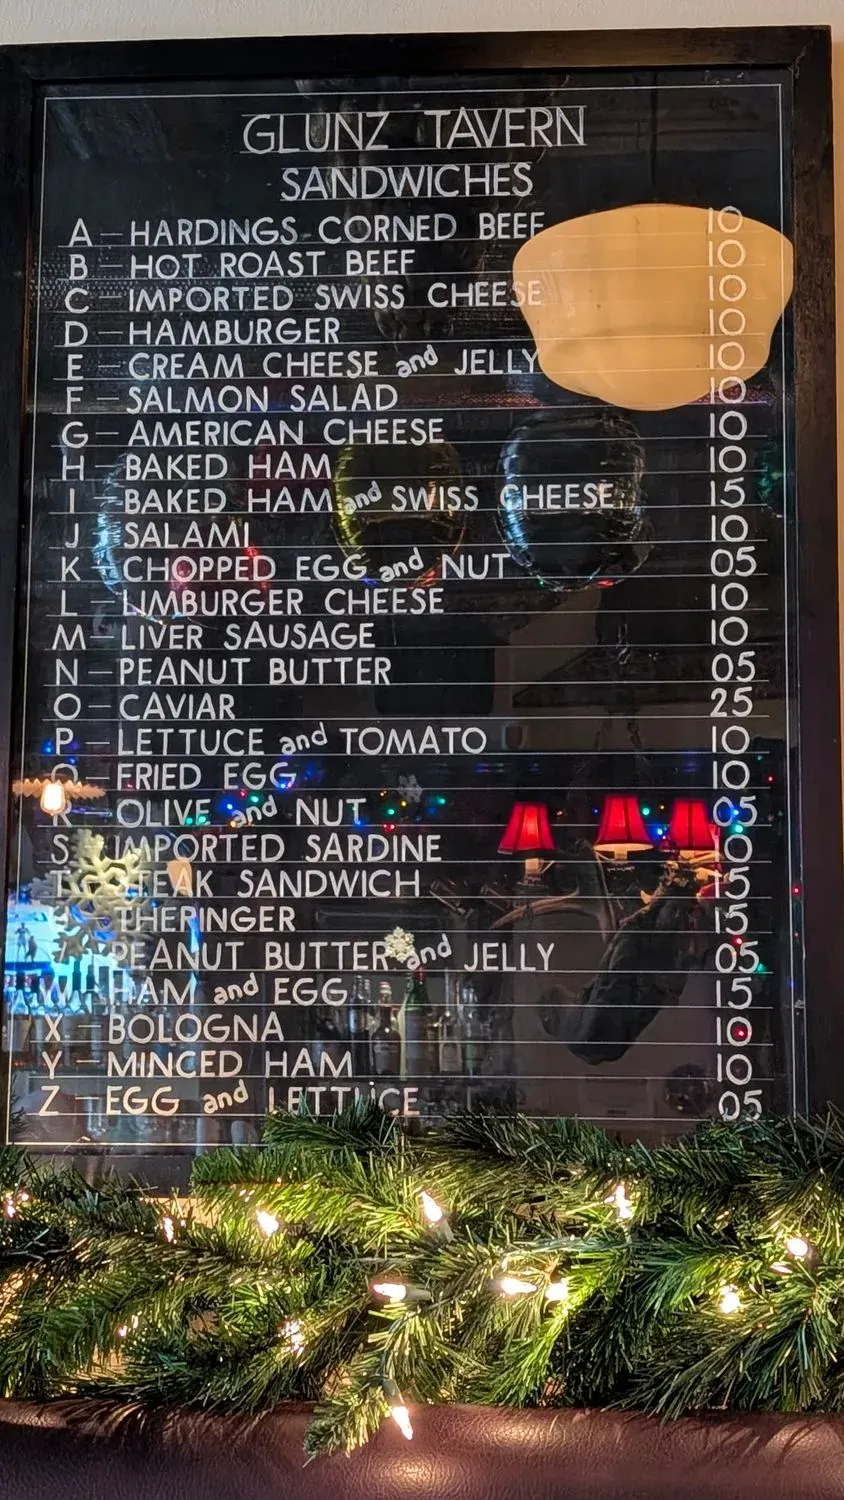 GLUNZ TAVERN
SANDWICHES
A – HARDINGS CORNED BEEF 10
B – HOT ROAST BEEF 10
C – IMPORTED SWISS CHEESE 10
D – HAMBURGER 10
E – CREAM CHEESE and JELLY 10
F – SALMON SALAD 10
G – AMERICAN CHEESE 10
H – BAKED HAM 10
I – BAKED HAM and SWISS CHEESE 15
J – SALAMI 10
K – CHOPPED EGG and NUT 05
L – LIMBURGER CHEESE 10
M – LIVER SAUSAGE 10
N – PEANUT BUTTER 05
O – CAVIAR 25
P – LETTUCE and TOMATO 10
Q – FRIED EGG 10
R – OLIVE and NUT 05
S – IMPORTED SARDINE 10
T – STEAK SANDWICH 15
THERINGER 15
PEANUT BUTTER and JELLY 05
W – HAM and EGG 15
X – BOLOGNA 10
Y – MINCED HAM 10
Z – EGG and LETTUCE 05